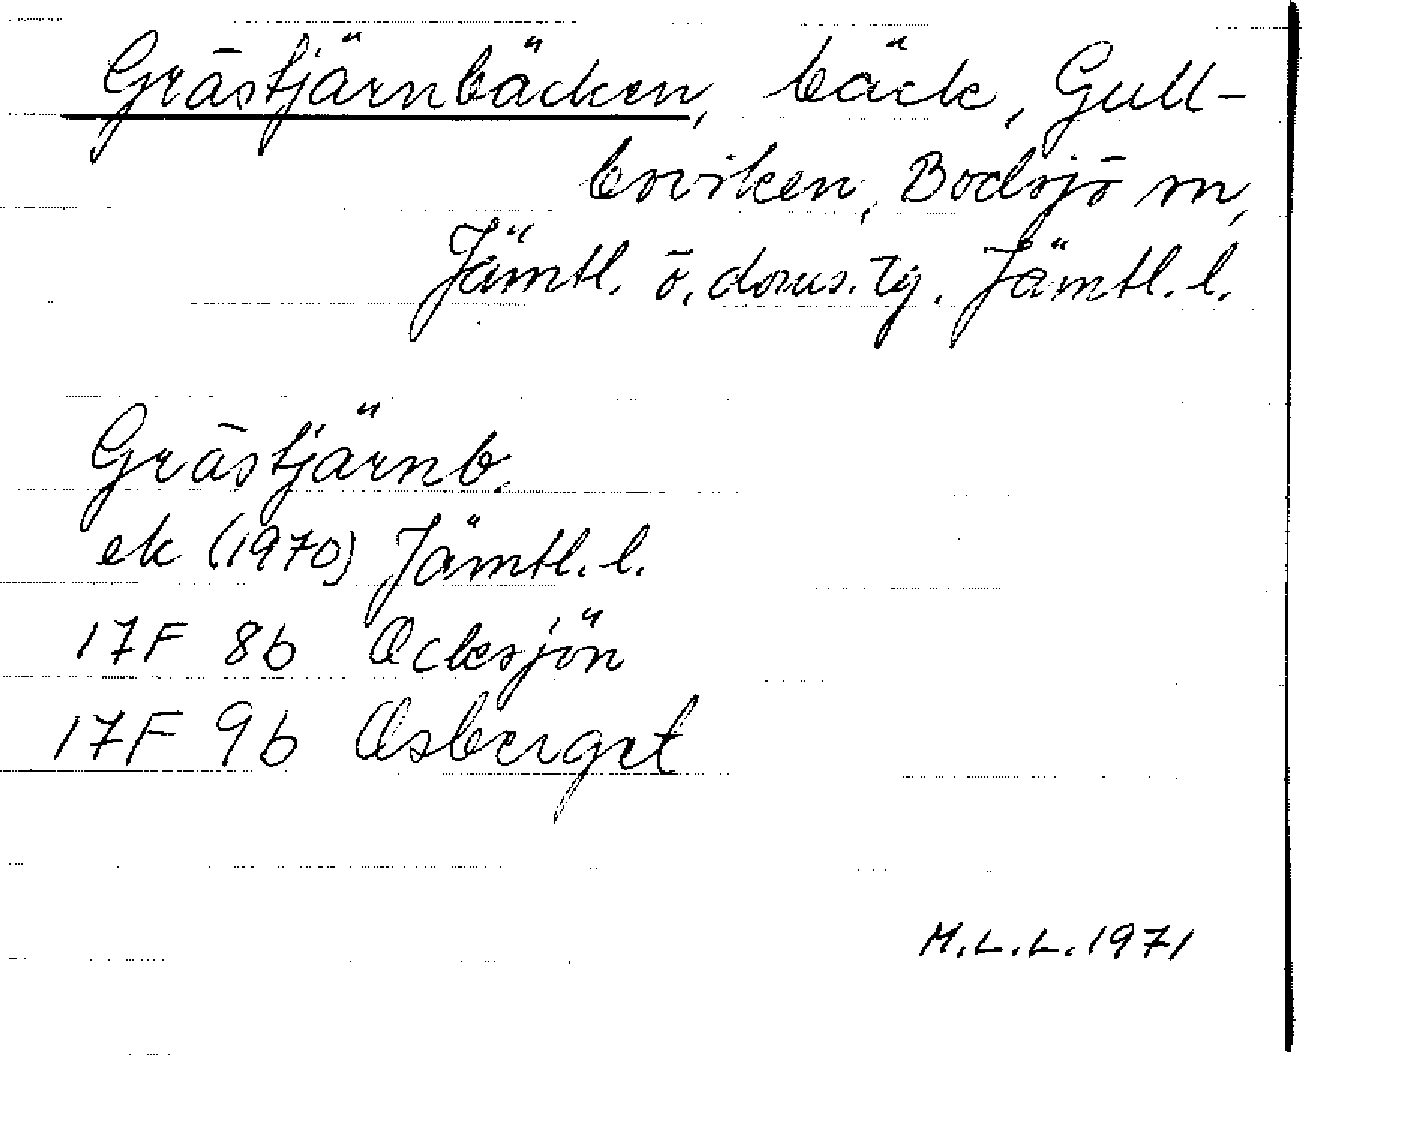 Grästjärnbäcken, bäck, Gull-
boviken, Bodsjö sn,
Jämtl. ö. doms. tg. Jämtl. l.
Grästjärnb.
ek (1970) Jämtl. l.
17F 8b Ocksjön
17F 9b Osberget
M.L.L. 1971